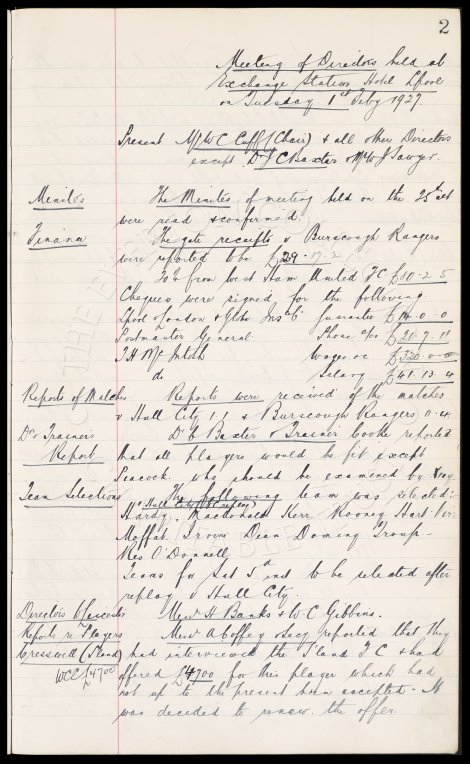 2
Meeting of Directors held at
Exchange Station Hotel Lpool
on Tuesday 1st Feby 1927.
Present Mr W C Cuff (Chair) & all other Directors
except Dr J C Baxter & Mr W J Sawyer.
Minutes The Minutes of meeting held on the 25th ult
were read & confirmed.
Finance The gate receipts v Burscough Rangers
were reported to be £29.17.2
Do from West Ham United FC £10.2.5
Cheques were signed for the following
Lpool & London & Globe Ins Co Guarantee £14.0.0
Postmaster General Phone a/cs £21.7.11
T H McIntosh Wages ac £320.0.0
do Salary £41.13.4
Reports of Matches Reports were received of the matches
v Hull City 1.1 & Burscough Rangers 0.4.
Dr & Trainers Dr Baxter & Trainer Cooke reported
Report that all players would be fit except
Peacock, who should be examined by Xray.
Team Selections The following team was selected:
v Hull City (Cup replay)
Hardy. Macdonald Kerr Rooney Hart Virr
Moffat Irvine Dean Dominy Troup.
Res O'Donnell
Teams for Sat 5th inst to be selected after
replay v Hull City.
Directors Leicester Messrs H Banks & W C Gibbins.
Reports re Players Messrs A Coffey & Secy reported that they
Cresswell (S'land) had interviewed the S'land FC & had
WCC £4700 offered £4700 for this player which had
not up to the present been accepted - It
was decided to renew the offer.